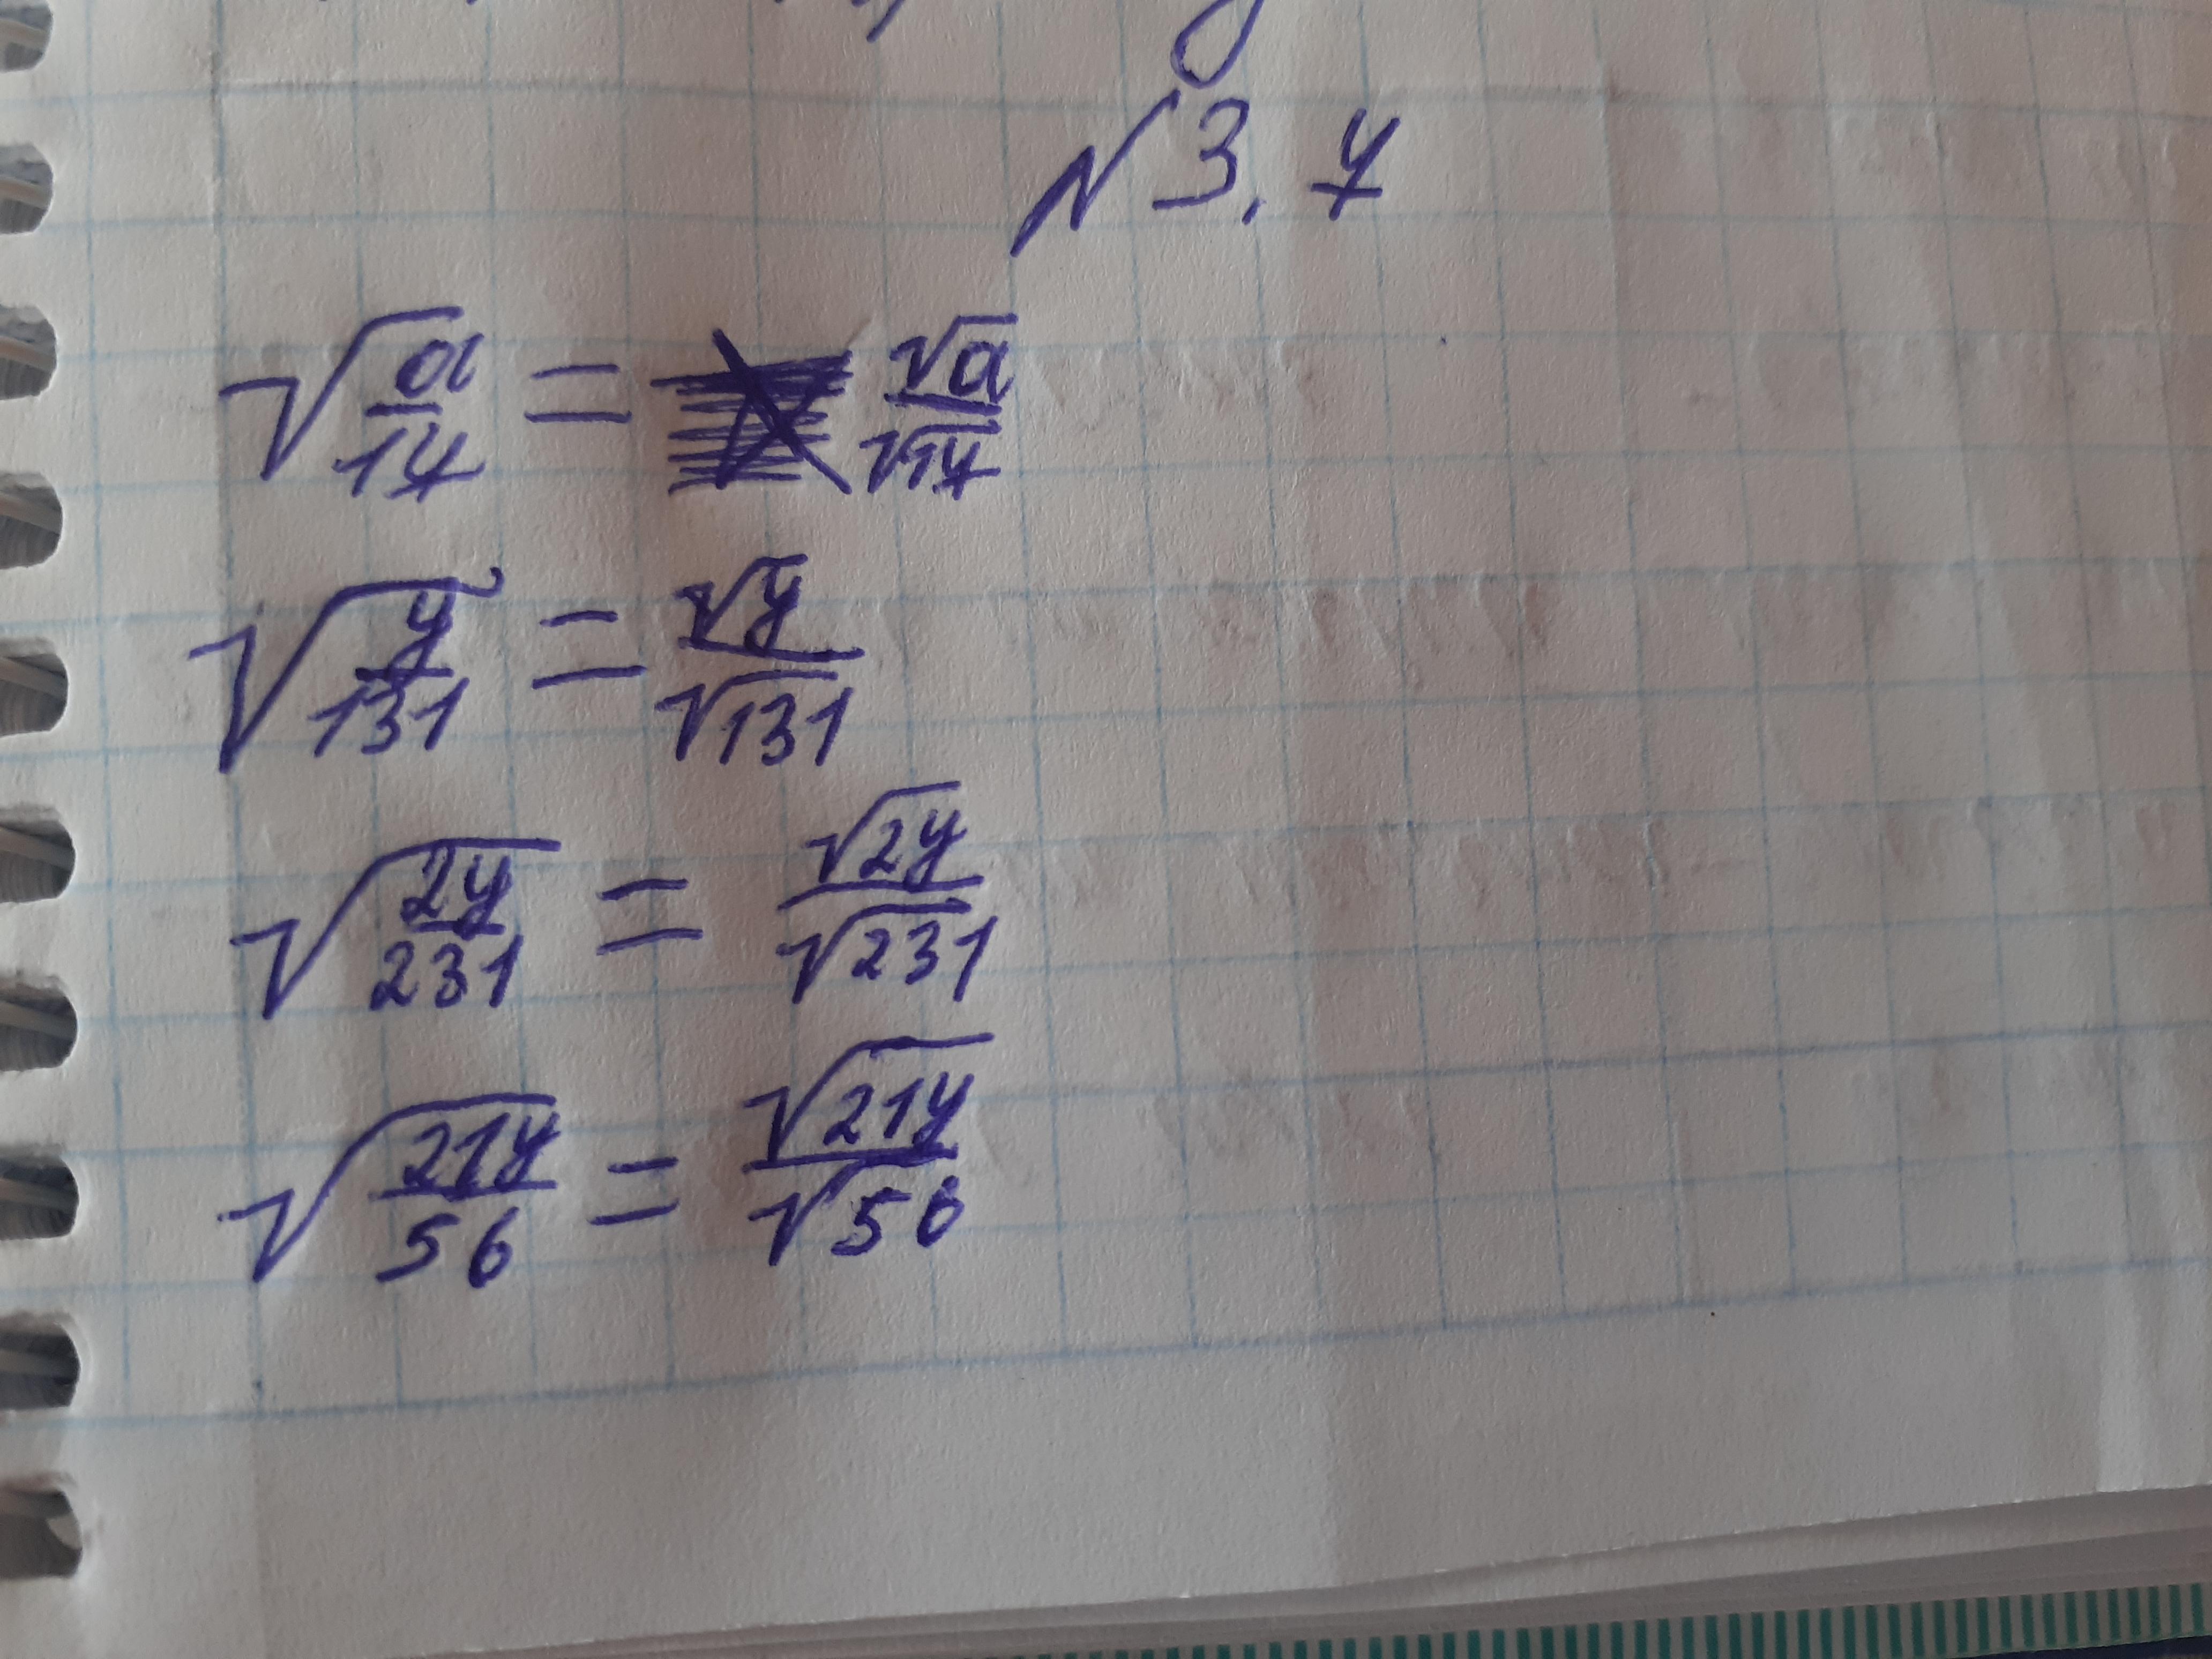 №3.4
√(a/14) = √a/√14
√(y/131) = √y/√131
√(2y/231) = √2y/√231
√(21y/56) = √21y/√56